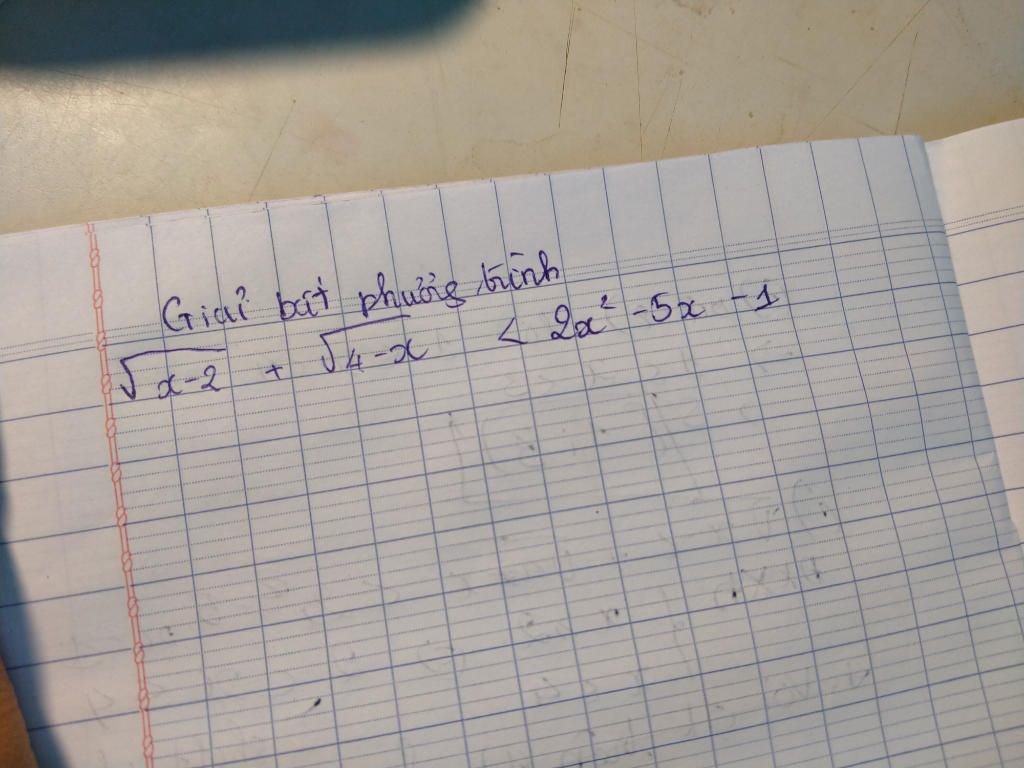 Giải bất phương trình
√x-2 + √4-x < 2x² - 5x - 1